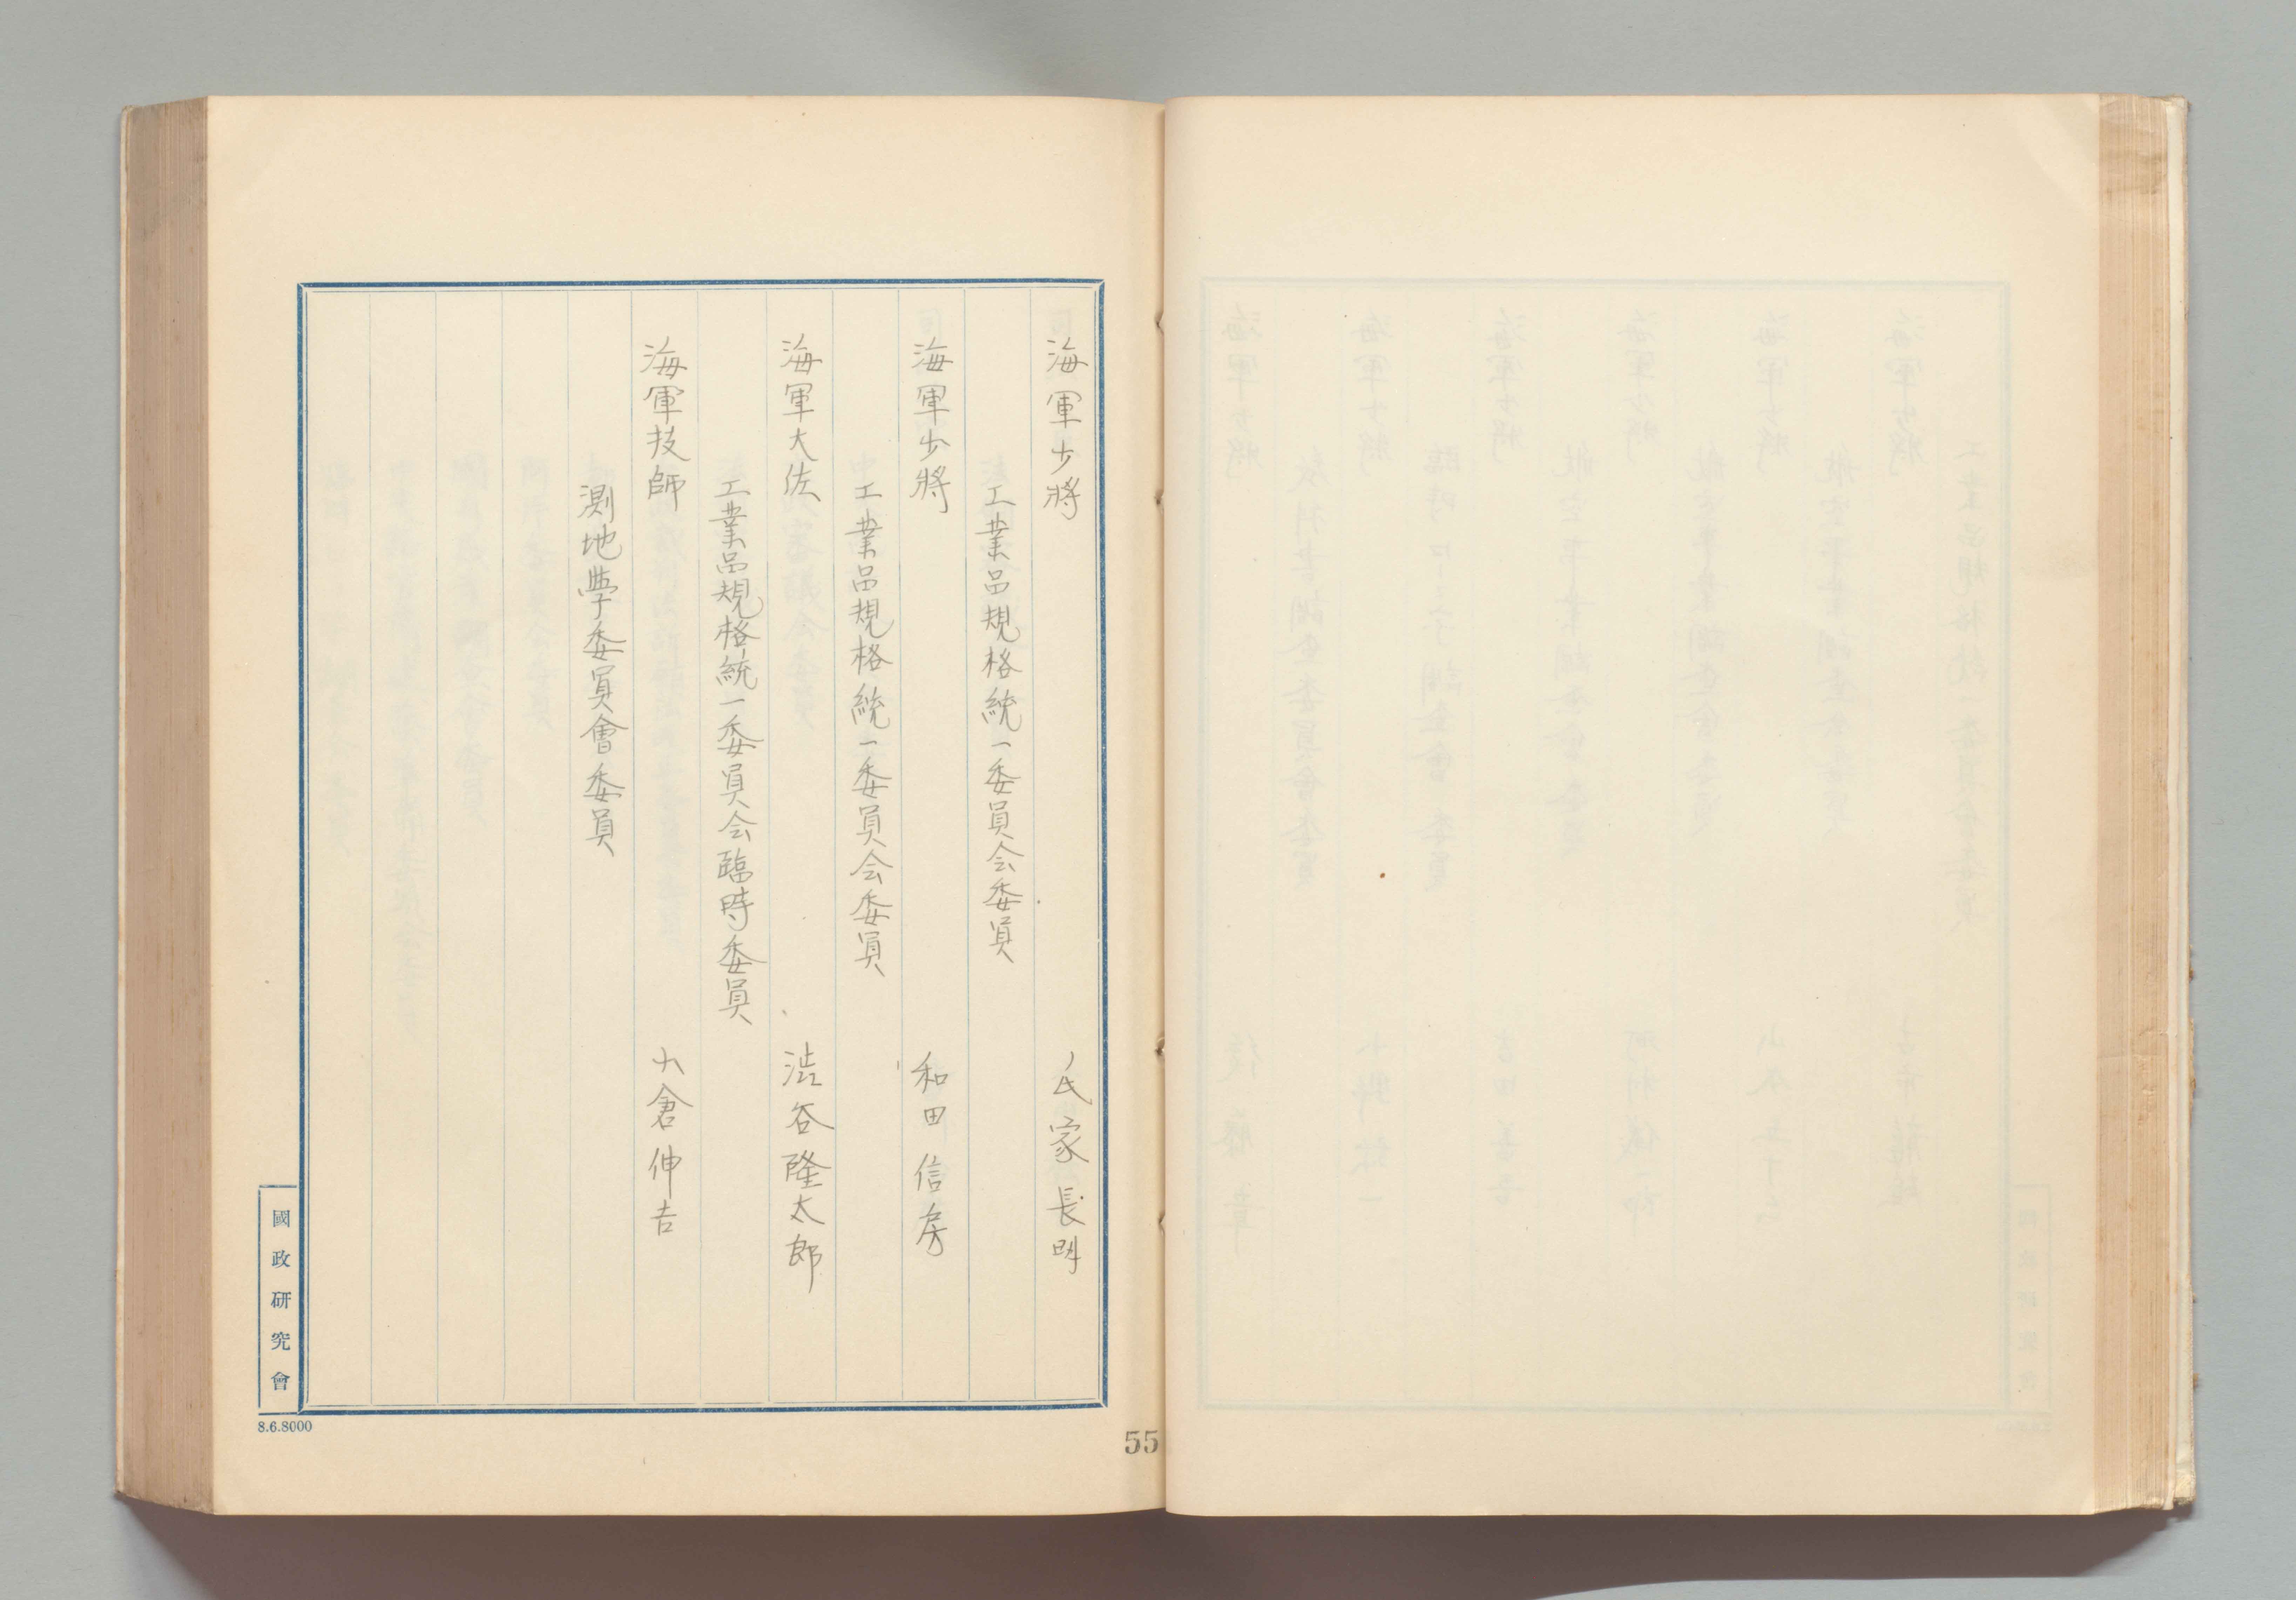 海軍少將　氏家長明
工業品規格統一委員会委員
海軍少將　和田信房
工業品規格統一委員会委員
海軍大佐　渋谷隆太郎
工業品規格統一委員会臨時委員
海軍技師　大倉伸吉
測地學委員會委員
國政研究會
8.6.8000
55